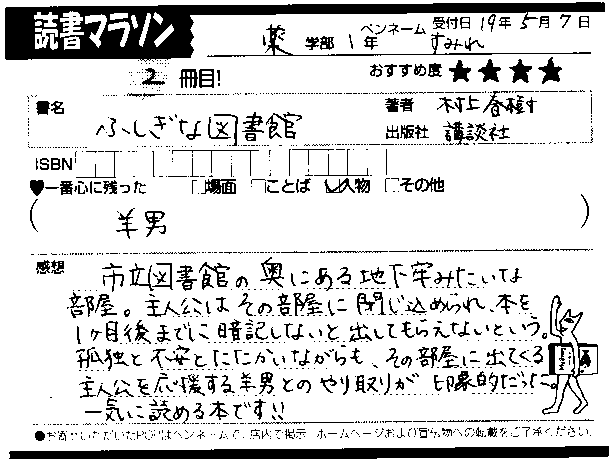 読書マラソン
薬 学部 1 年 ペンネーム すみれ 受付日 19年 5月 7日
2 冊目! おすすめ度 ★★★★
書名 ふしぎな図書館
著者 村上春樹
出版社 講談社
ISBN
♥一番心に残った □場面 □ことば ☑人物 □その他
( 羊男 )
感想 市立図書館の奥にある地下牢みたいな
部屋。主人公はその部屋に閉じ込められ、本を
1ヶ月後までに暗記しないと出してもらえないという。
孤独と不安とたたかいながらも、その部屋に出てくる
主人公を応援する羊男とのやり取りが印象的だった。
一気に読める本です!!
●お寄せいただいたPOPはペンネームで、店内で掲示 ホームページおよび冒険物への転載をご了承ください。